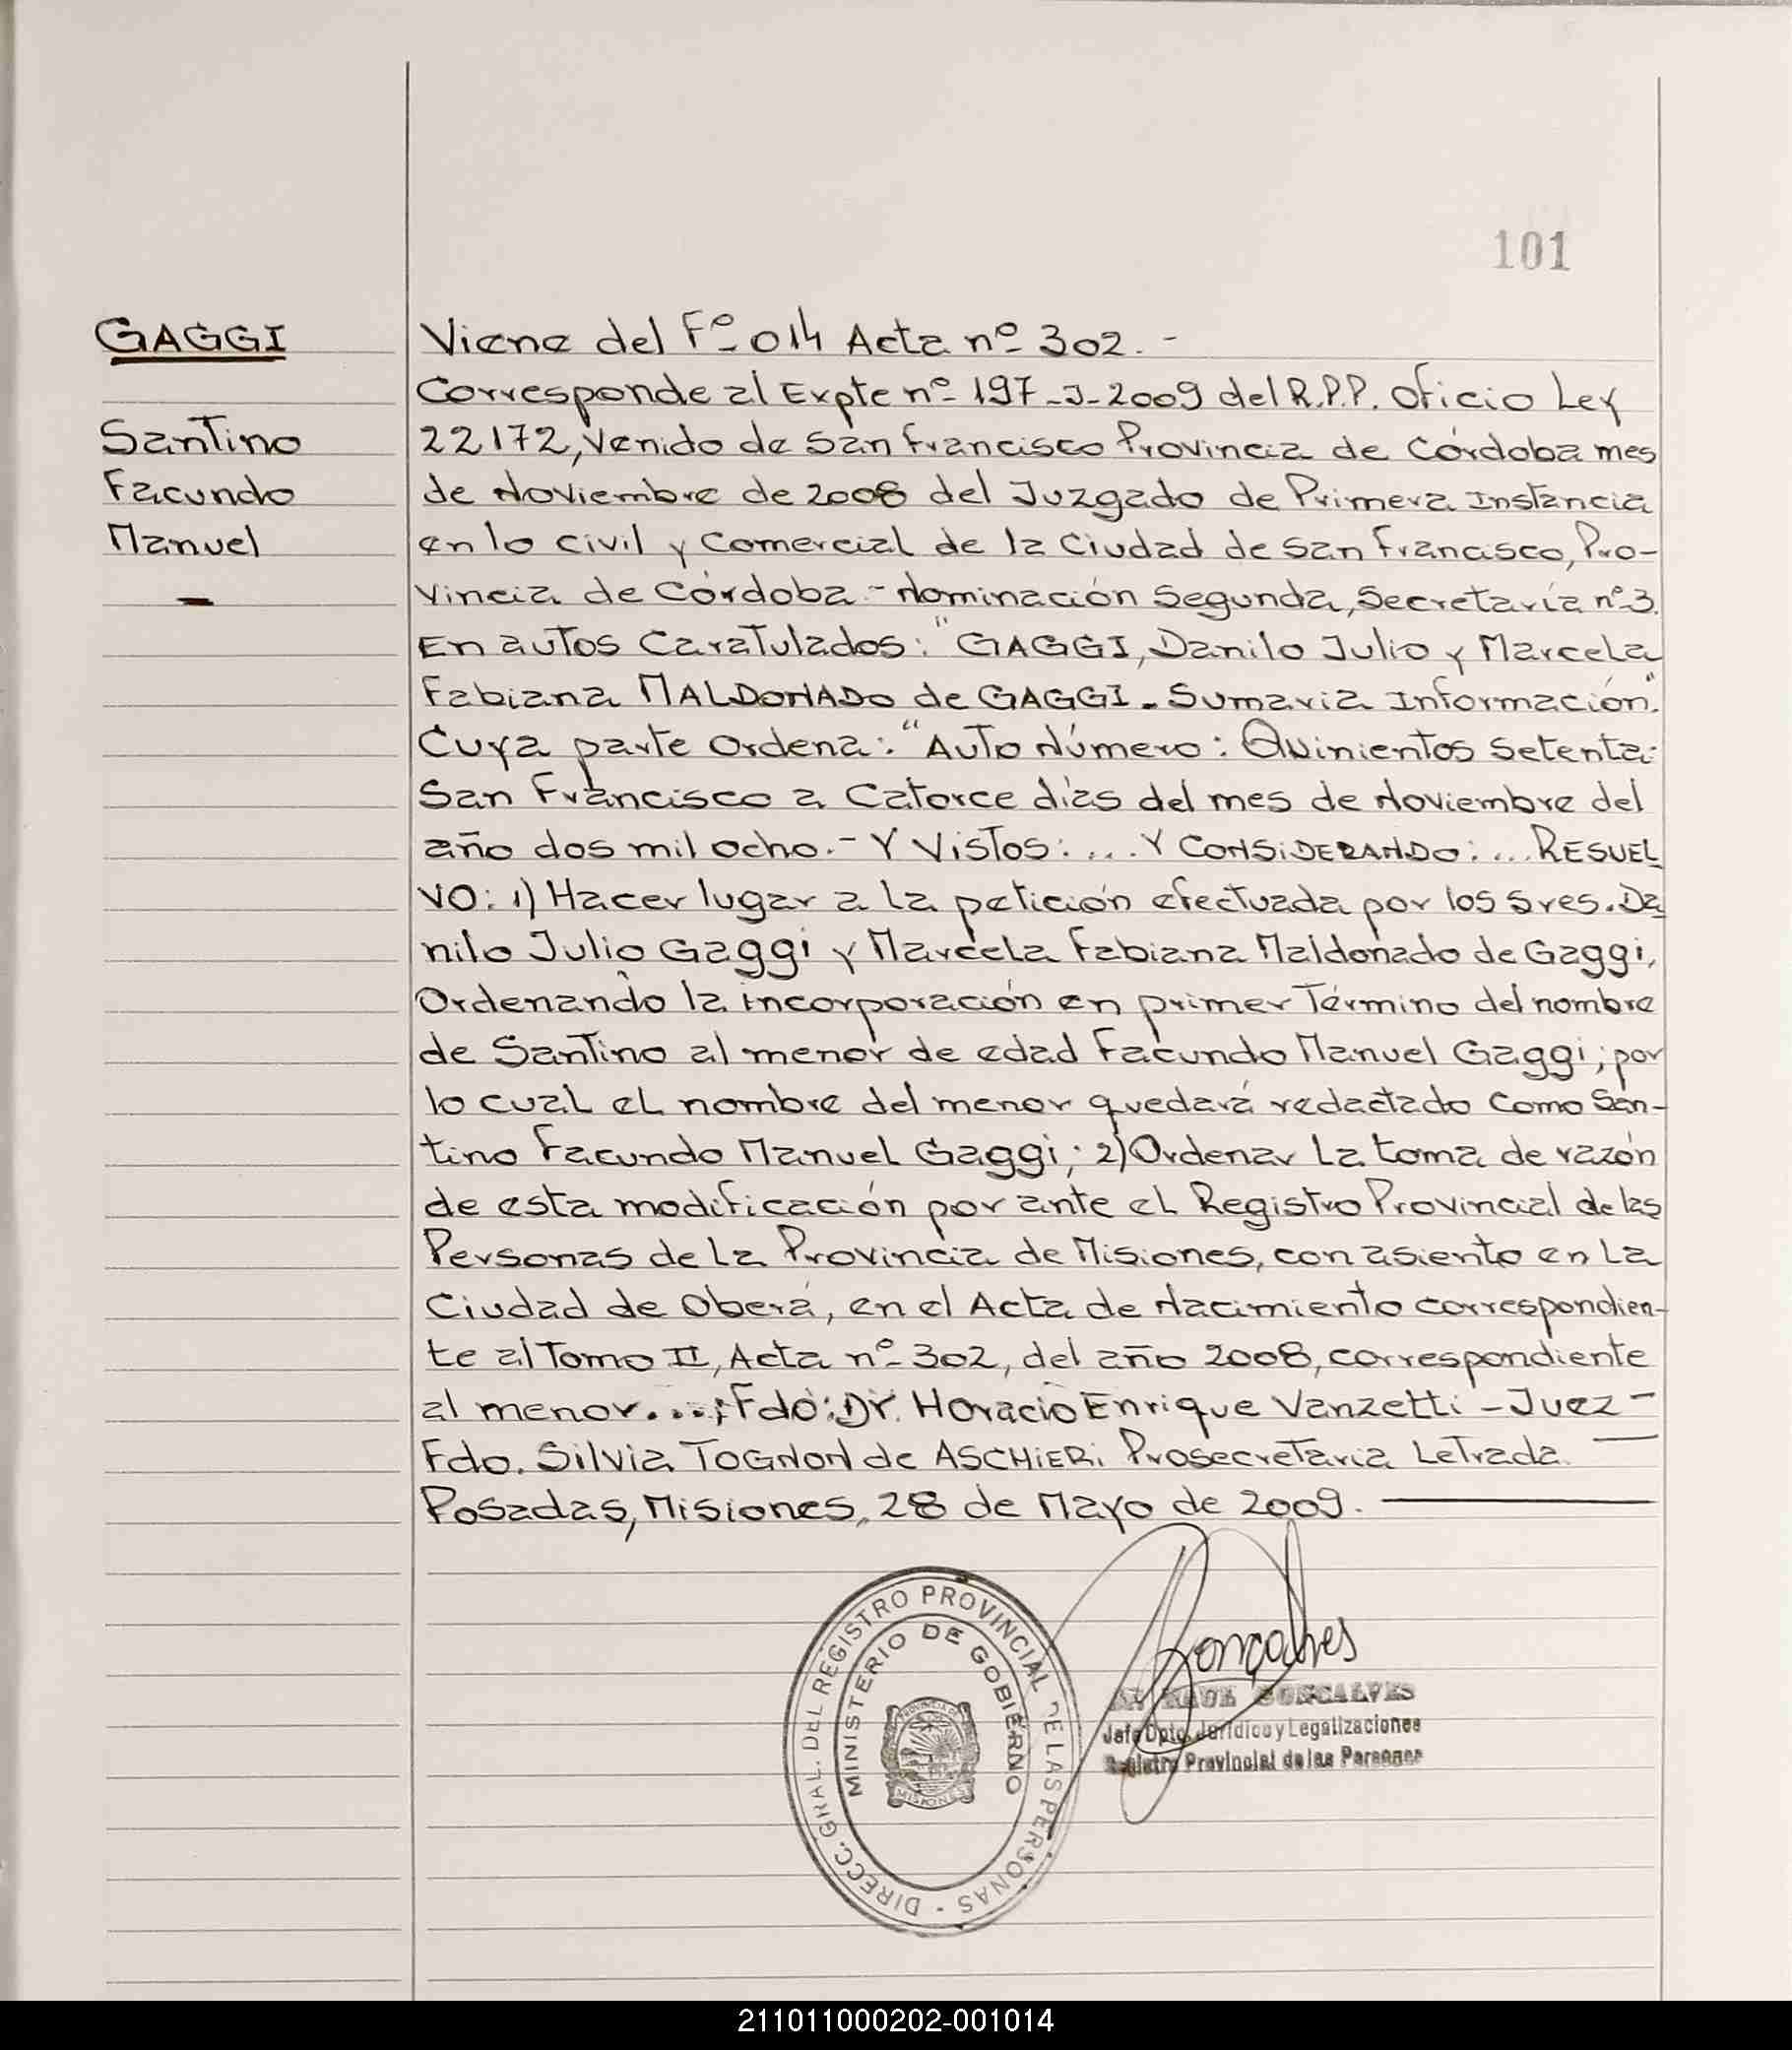 101
GAGGI
Santino
Facundo
Manuel
Viene del Fº 014 Acta nº 302.-
Corresponde al Expte nº 197-J-2009 del R.P.P. Oficio Ley
22172, Venido de San Francisco Provincia de Córdoba mes
de Noviembre de 2008 del Juzgado de Primera Instancia
en lo civil y Comercial de la Ciudad de San Francisco, Pro-
vincia de Córdoba.- Nominación Segunda, Secretaría nº 3.
En autos Caratulados: "GAGGI, Danilo Julio y Marcela
Fabiana MALDONADO de GAGGI - Sumaria Información".
Cuya parte Ordena: "Auto Número: Quinientos Setenta:
San Francisco a Catorce días del mes de Noviembre del
año dos mil ocho.- Y Vistos: .... Y CONSiDERANDO: ... RESUEL
VO: 1) Hacer lugar a la petición efectuada por los Sres. Da
nilo Julio Gaggi y Marcela Fabiana Maldonado de Gaggi,
Ordenando la incorporación en primer Término del nombre
de Santino al menor de edad Facundo Manuel Gaggi; por
lo cual el nombre del menor quedará redactado como San-
tino Facundo Manuel Gaggi; 2) Ordenar La toma de razón
de esta modificación por ante el Registro Provincial de las
Personas de La Provincia de Misiones, con asiento en La
Ciudad de Oberá, en el Acta de Nacimiento correspondien-
te al Tomo II, Acta nº 302, del año 2008, correspondiente
al menor....; Fdo: Dr. Horacio Enrique Vanzetti - Juez -
Fdo. Silvia TOGNON de ASCHiERi Prosecretaria Letrada.
Posadas, Misiones, 28 de Mayo de 2009.
DIRECC. GRAL. DEL REGISTRO PROVINCIAL DE LAS PERSONAS -
MINISTERIO DE GOBIERNO
MISIONES
Goncalves
RAUL GONCALVES
Jefe Dpto. Jurídico y Legalizaciones
Registro Provincial de las Personas
211011000202-001014